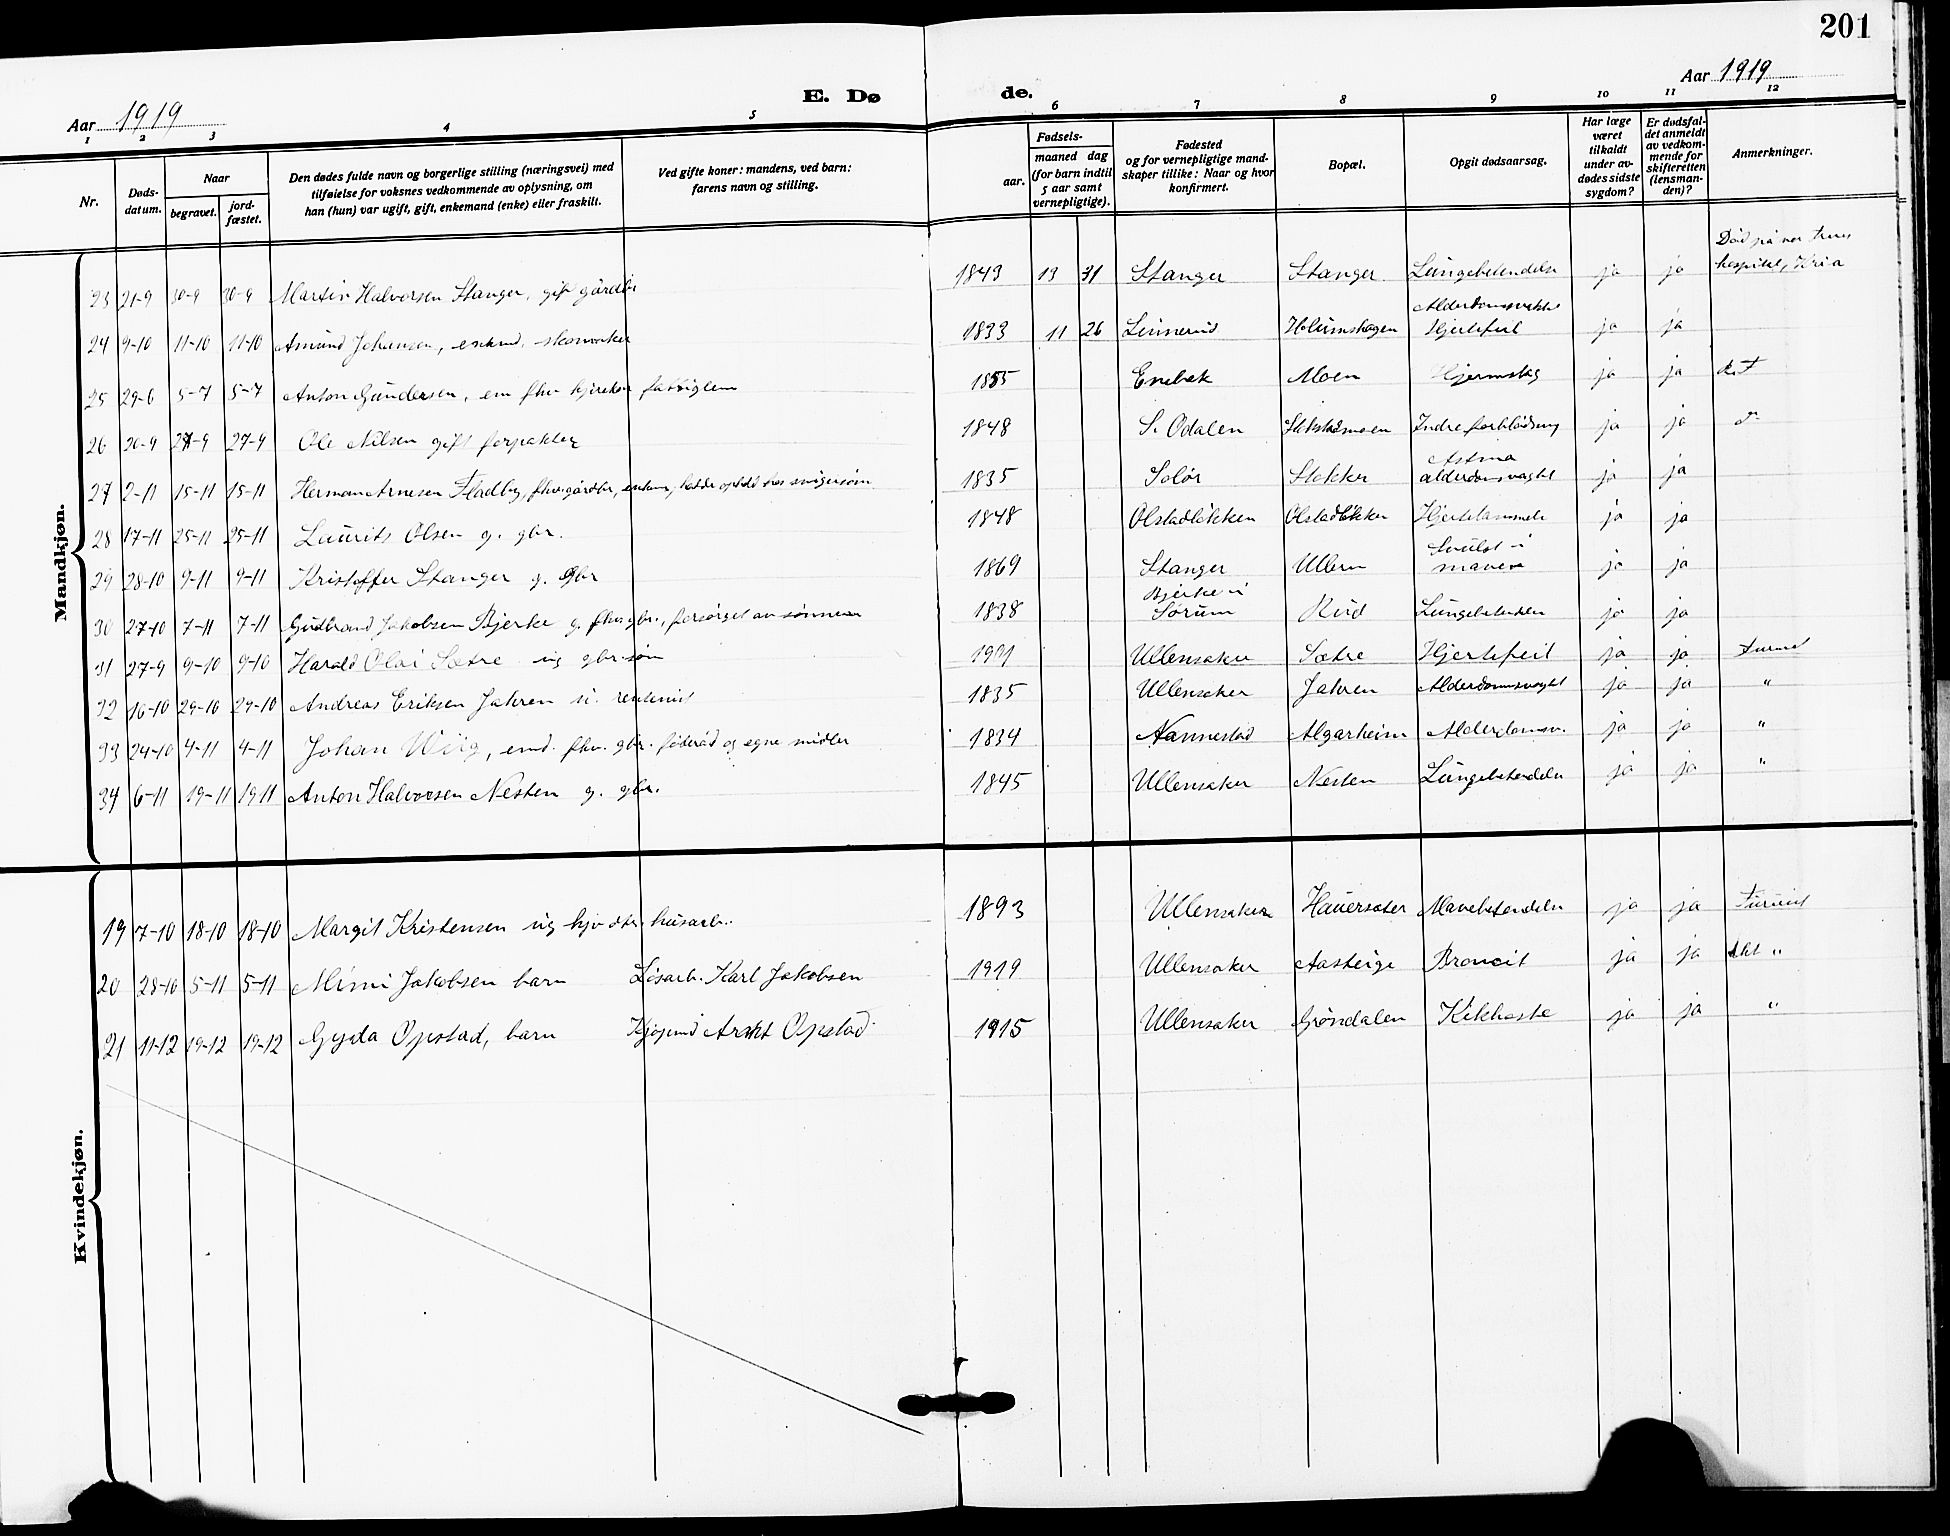 201
Aar 1919
E. Dø
de.
Aar 1919
1 2 3 4 5 6 7 8 9 10 11 12
Nr.
Døds-
datum.
Naar
begravet.
jord-
fæstet.
Den dødes fulde navn og borgerlige stilling (næringsvei) med
tilføielse for voksnes vedkommende av oplysning, om
han (hun) var ugift, gift, enkemand (enke) eller fraskilt.
Ved gifte koner: mandens, ved barn:
farens navn og stilling.
Fødsels-
aar.
maaned dag
(for barn indtil
5 aar samt
vernepligtige).
Fødested
og for vernepligtige mand-
skaper tillike: Naar og hvor
konfirmert.
Bopæl.
Opgit dødsaarsag.
Har læge
været
tilkaldt
under av-
dødes sidste
sygdom?
Er dødsfal-
det anmeldt
av vedkom-
mende for
skifteretten
(lensman-
den)?
Anmerkninger.
Mandkjøn.
23 21-9 30-9 30-9 Martin Halvorsen Stanger, gift gårdbr 1843 13 31 Stanger Stanger Lungebetendelse ja ja Død på vor
hospital, Kria
24 9-10 11-10 11-10 Amund Johansen, enkmd. skomaker 1833 11 26 Linnerud Holumshagen Alderdomsvakth
Hjertefeil ja ja
25 29-6 5-7 5-7 Anton Gundersen, em fhv kjørekar fattiglem 1855 Enebak Moen Hjerneslag ja ja
26 20-9 27-9 27-9 Ole Nilsen gift forpakter 1848 S. Odalen Indre forblødning ja ja
27 2-11 15-11 15-11 Herman Arnesen Fladby, fhv. gårdbr, enkem, hadde ophold hos svigersøn 1835 Solør Stokker Astma
alderdomsvaghet ja ja
28 17-11 25-11 25-11 Laurits Olsen g. gbr. 1848 Olstadløkken Olstadløkken Hjertelammelse ja ja
29 28-10 9-11 9-11 Kristoffer Stanger g. gbr 1869 Stanger Ullern Svulst i
maven ja ja
30 27-10 7-11 7-11 Gudbrand Jakobsen Bjerke g. fhv. gbr., forsørget av sønnen 1838 Bjerke i
Sørum Rud Lungebetendelse ja ja
31 27-9 9-10 9-10 Harald Olai Sætre ug gbr. søn 1901 Ullensaker Sætre Hjertefeil ja ja
32 16-10 29-10 29-10 Andreas Eriksen Jahren u. rentenist 1835 Ullensaker Jahren Alderdomsvaghet ja ja "
33 24-10 4-11 4-11 Johan Wiig, emd. fhv. gbr. føderåd og egne midler 1834 Nannestad Algarheim Alderdomsv. ja ja "
34 6-11 19-11 19 11 Anton Halvorsen Nesten g. gbr. 1845 Ullensaker Nesten Lungebetendelse ja ja "
Kvindekjøn.
19 7-10 18-10 18-10 Margit Kristensen ug hjv dtr. husarb. 1893 Ullensaker Hauersæter Mavebetendelse ja ja
20 28-10 5-11 5-11 Mimi Jakobsen barn Løsarb. Karl Jakobsen 1919 Ullensaker Aasteige Broncit ja ja "
21 11-12 19-12 19-12 Gyda Opstad, barn Kjøpmd Opstad 1915 Ullensaker Grøndalen Kikhoste ja ja "